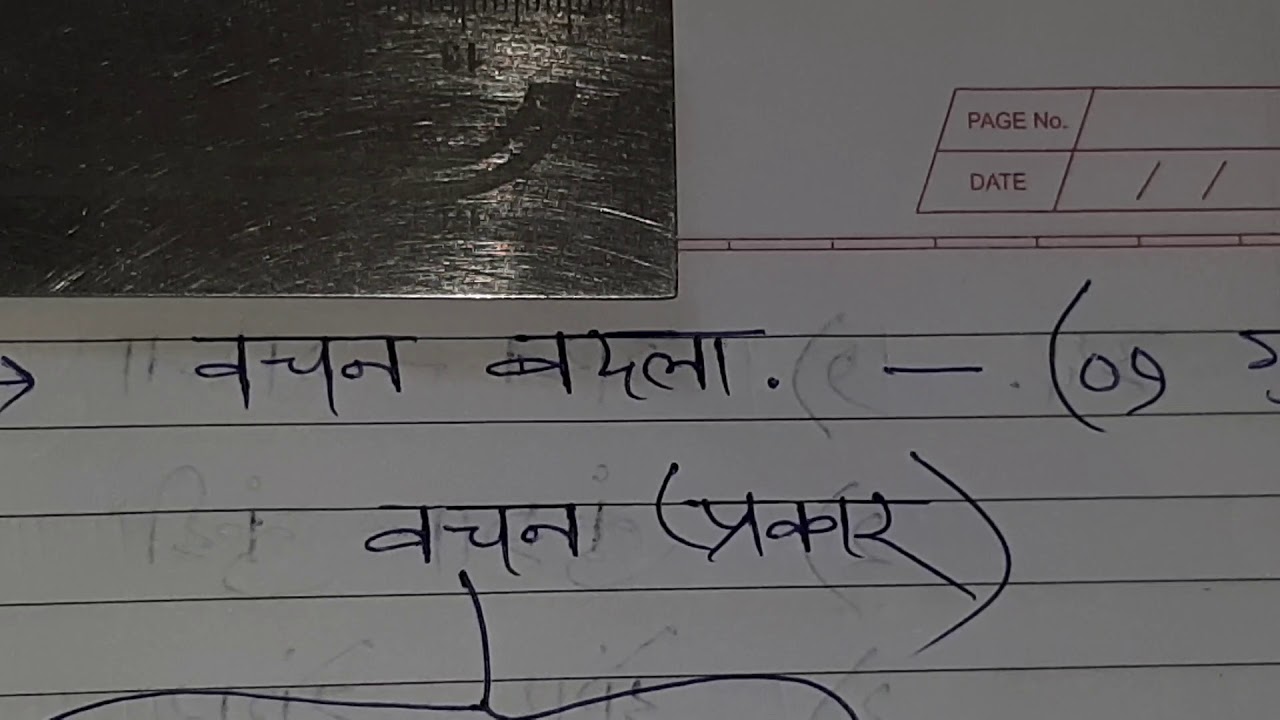 PAGE No.
DATE / /
→ वचन बदला. — (०१
वचन (प्रकार)